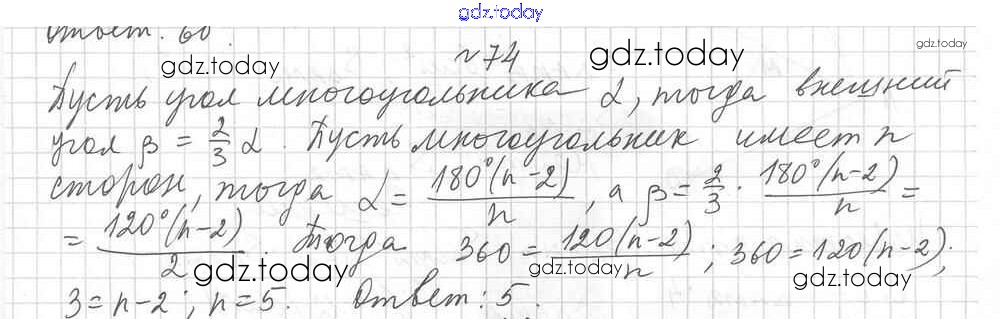 gdz.today
Ответ: 60°.
№74
gdz.today
gdz.today
gdz.today
Пусть угол многоугольника α, тогда внешний
угол β = 2/3 α. Пусть многоугольник имеет n
сторон, тогда α = 180°(n-2)/n, а β = 2/3 · 180°(n-2)/n =
= 120°(n-2)/2. Тогда 360 = 120(n-2)/n; 360 = 120(n-2);
gdz.today
gdz.today
gdz.today
3 = n-2; n = 5. Ответ: 5.